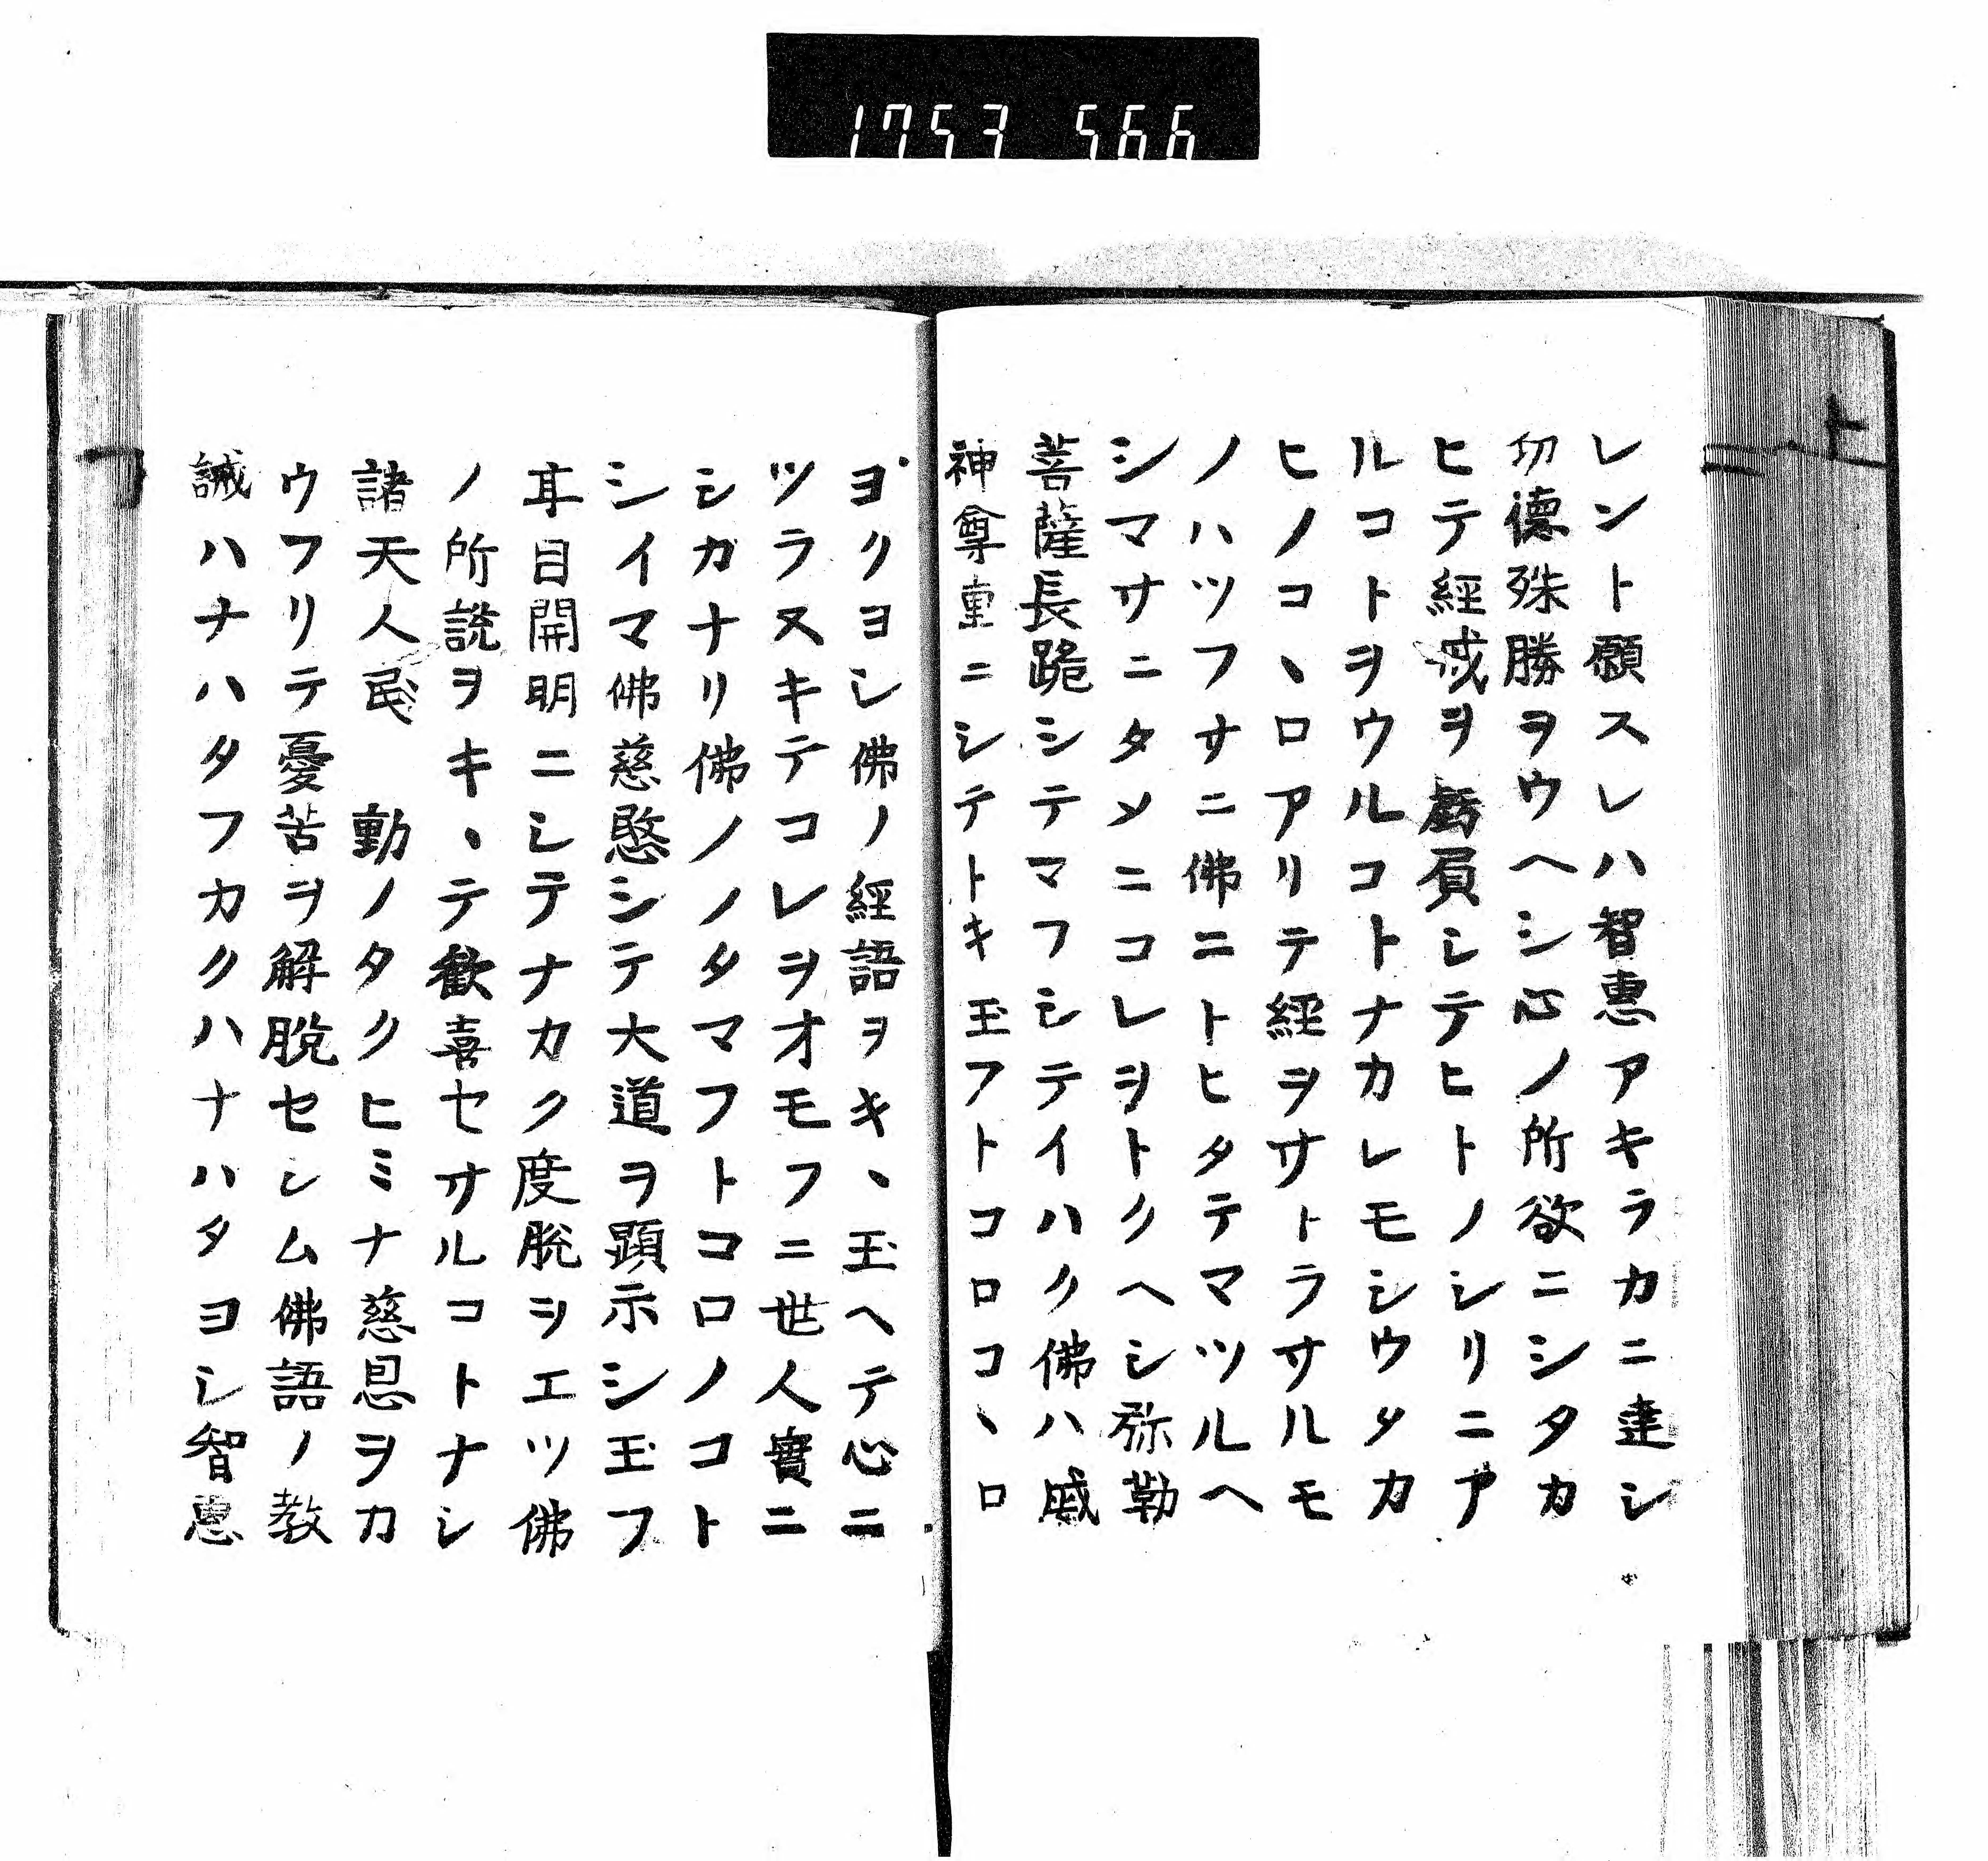 1753 566
レント願スレハ智恵アキラカニ達シ
功德殊勝ヲウヘシ心ノ所欲ニシタカ
ヒテ經戒ヲ虧屓シテヒトノシリニア
ルコトヲウルコトナカレモシウタカ
ヒノコヽロアリテ經ヲサトラサルモ
ノハツフサニ佛ニトヒタテマツルヘ
シマサニタメニコレヲトクヘシ弥勒
菩薩長跪シテマフシテイハク佛ハ威
神尊重ニシテトキ玉フトコロコヽロ
ヨクヨシ佛ノ經語ヲキヽ玉ヘテ心ニ
ツラヌキテコレヲオモフニ世人實ニ
シカナリ佛ノノタマフトコロノコト
シイマ佛慈愍シテ大道ヲ顕示シ玉フ
耳目開明ニシテナカク度脱ヲエツ佛
ノ所説ヲキヽテ歓喜セサルコトナシ
諸天人民 動ノタクヒミナ慈恩ヲカ
ウフリテ憂苦ヲ解脱セシム佛語ノ教
誡ハナハタフカクハナハタヨシ智恵